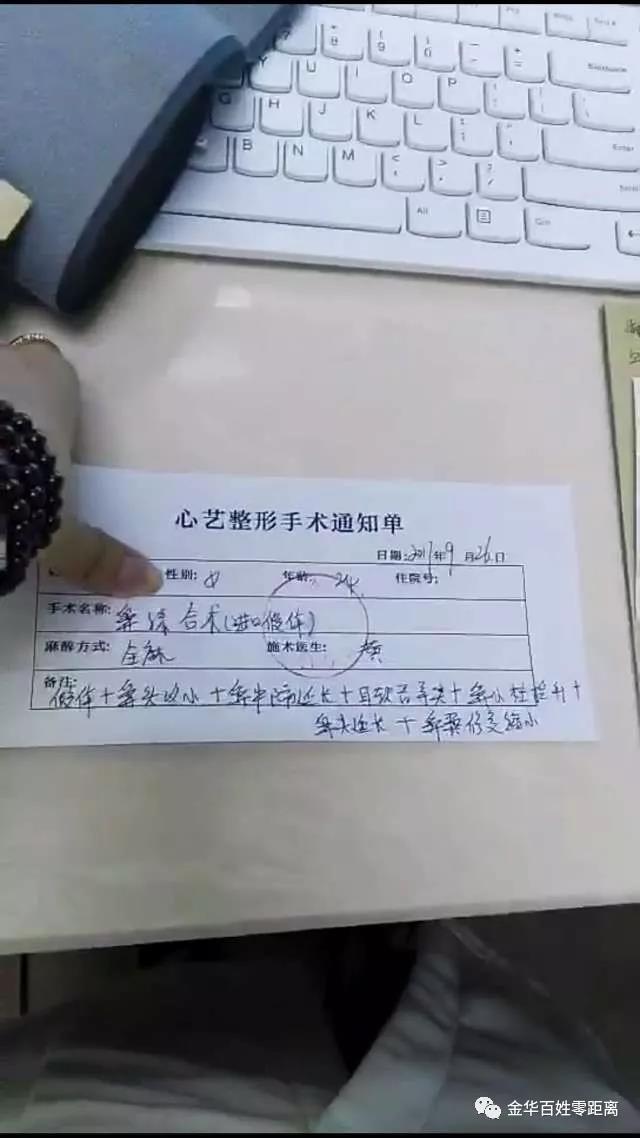 心艺整形手术通知单
日期:2017年9月26日
性别:女 年龄:24 住院号:
手术名称:鼻综合术(进口假体)
麻醉方式:全麻 施术医生:黄
备注:
假体+鼻头缩小+鼻中隔延长+耳软骨鼻尖+鼻小柱提升+
鼻头延长+鼻翼修复缩小
金华百姓零距离